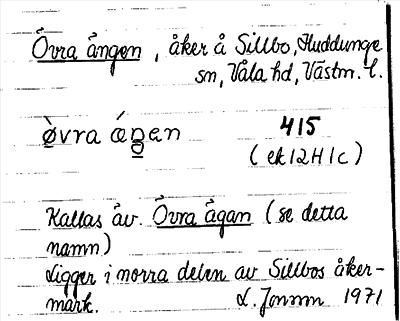 Övra ången, åker å Sillbo, Huddunge
sn, Våla hd, Västm. l.
ø̀vra áŋan 415
(ek 12H1c)
Kallas äv. Övra ågan (se detta
namn)
Ligger i norra delen av Sillbos åker-
mark. L. Jonson 1971